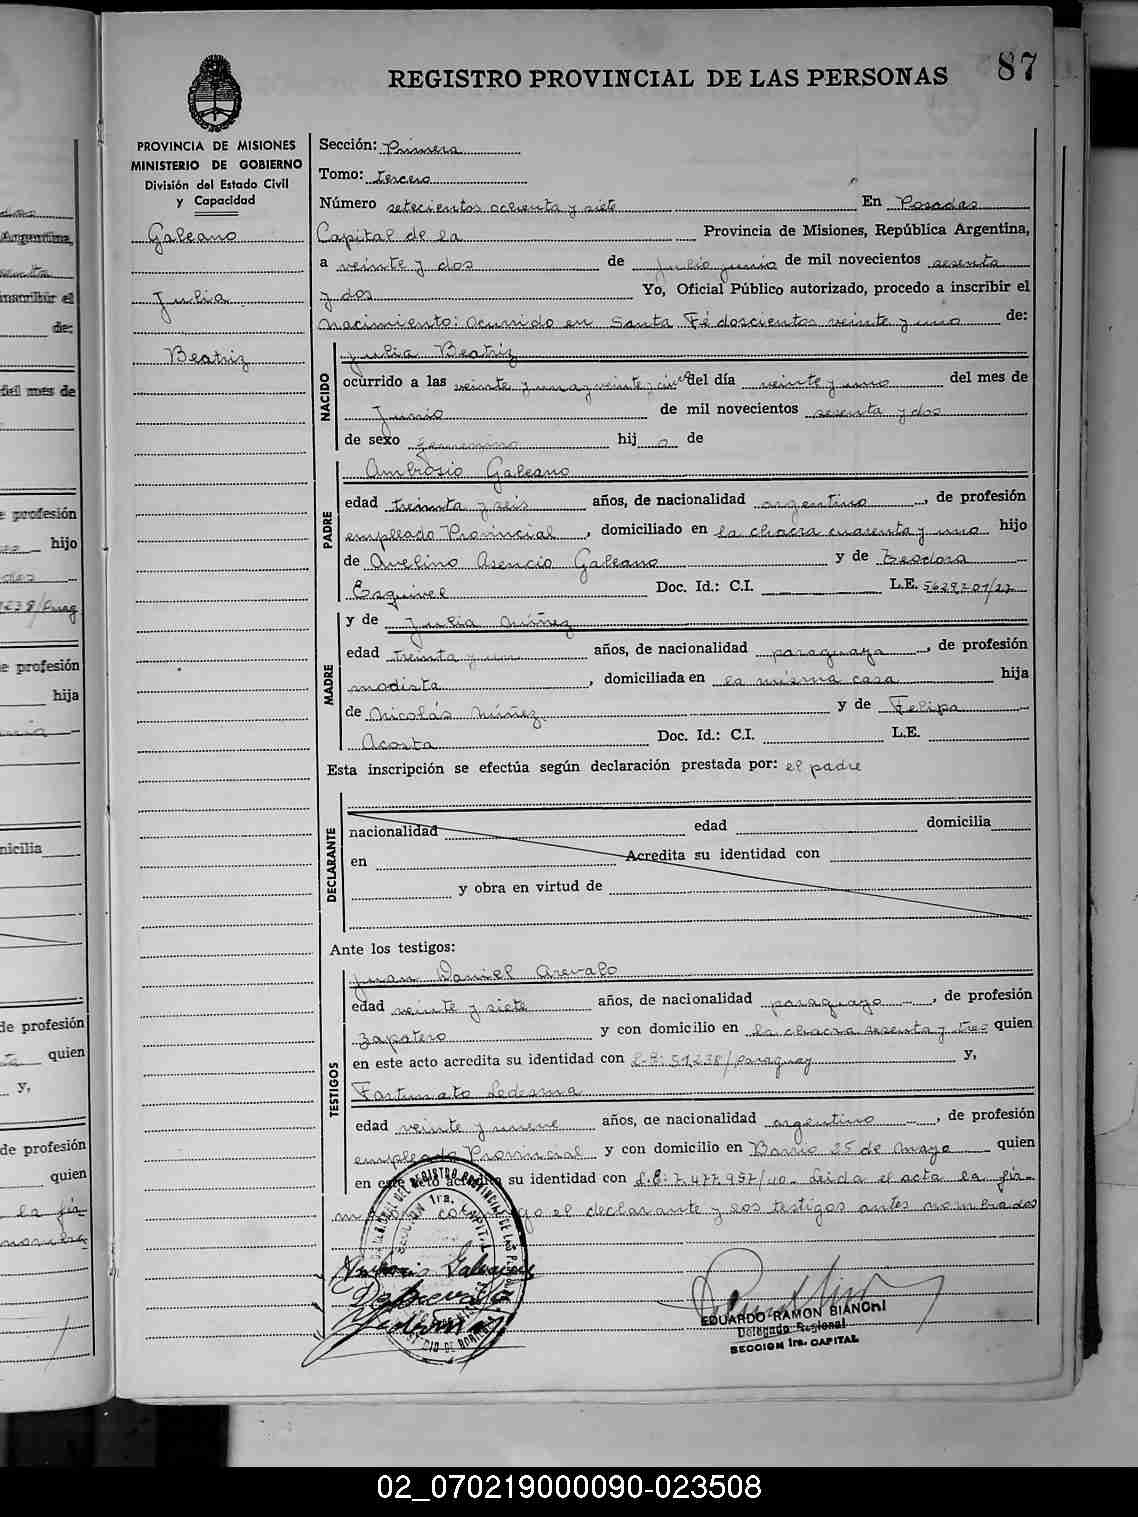 87
REGISTRO PROVINCIAL DE LAS PERSONAS
PROVINCIA DE MISIONES
MINISTERIO DE GOBIERNO
División del Estado Civil
y Capacidad
Galeano
Julia
Beatriz
Sección: Primera
Tomo: tercero
Número setecientos ochenta y siete En Posadas
Capital de la Provincia de Misiones, República Argentina,
a veinte y dos de julio junio de mil novecientos sesenta
y dos Yo, Oficial Público autorizado, procedo a inscribir el
nacimiento: ocurrido en Santa Fé doscientos veinte y uno de:
NACIDO
Julia Beatriz
ocurrido a las veinte y una y veinte y cinco del día veinte y uno del mes de
Junio de mil novecientos sesenta y dos
de sexo femenino hij a de
PADRE
Ambrosio Galeano
edad treinta y seis años, de nacionalidad argentino, de profesión
empleado Provincial, domiciliado en la chacra cuarenta y uno hijo
de Avelino Asencio Galeano y de Teodora
Esquivel Doc. Id.: C.I. L.E.
MADRE
y de Julia Núñez
edad treinta y un años, de nacionalidad paraguaya, de profesión
modista, domiciliada en la misma casa hija
de Nicolás Núñez y de Felipa
Acosta Doc. Id.: C.I. L.E.
Esta inscripción se efectúa según declaración prestada por: el padre
DECLARANTE
nacionalidad edad domicilia
en Acredita su identidad con
y obra en virtud de
Ante los testigos:
TESTIGOS
Juan Daniel Arevalo
edad veinte y siete años, de nacionalidad paraguayo, de profesión
zapatero y con domicilio en la chacra sesenta y tres quien
en este acto acredita su identidad con L.E: 51.238/Paraguay y,
Fortunato Ledesma
edad veinte y nueve años, de nacionalidad argentino, de profesión
empleado Provincial y con domicilio en Barrio 25 de Mayo quien
en este acto acredita su identidad con L.E: 7.477.957/40. Leida el acta la fir-
man conmigo el declarante y los testigos antes nombrados
Ambrosio Galeano
DArevalo
Ledesma
EDUARDO RAMON BIANCHI
Delegado Regional
SECCION 1ra. CAPITAL
02_070219000090-023508